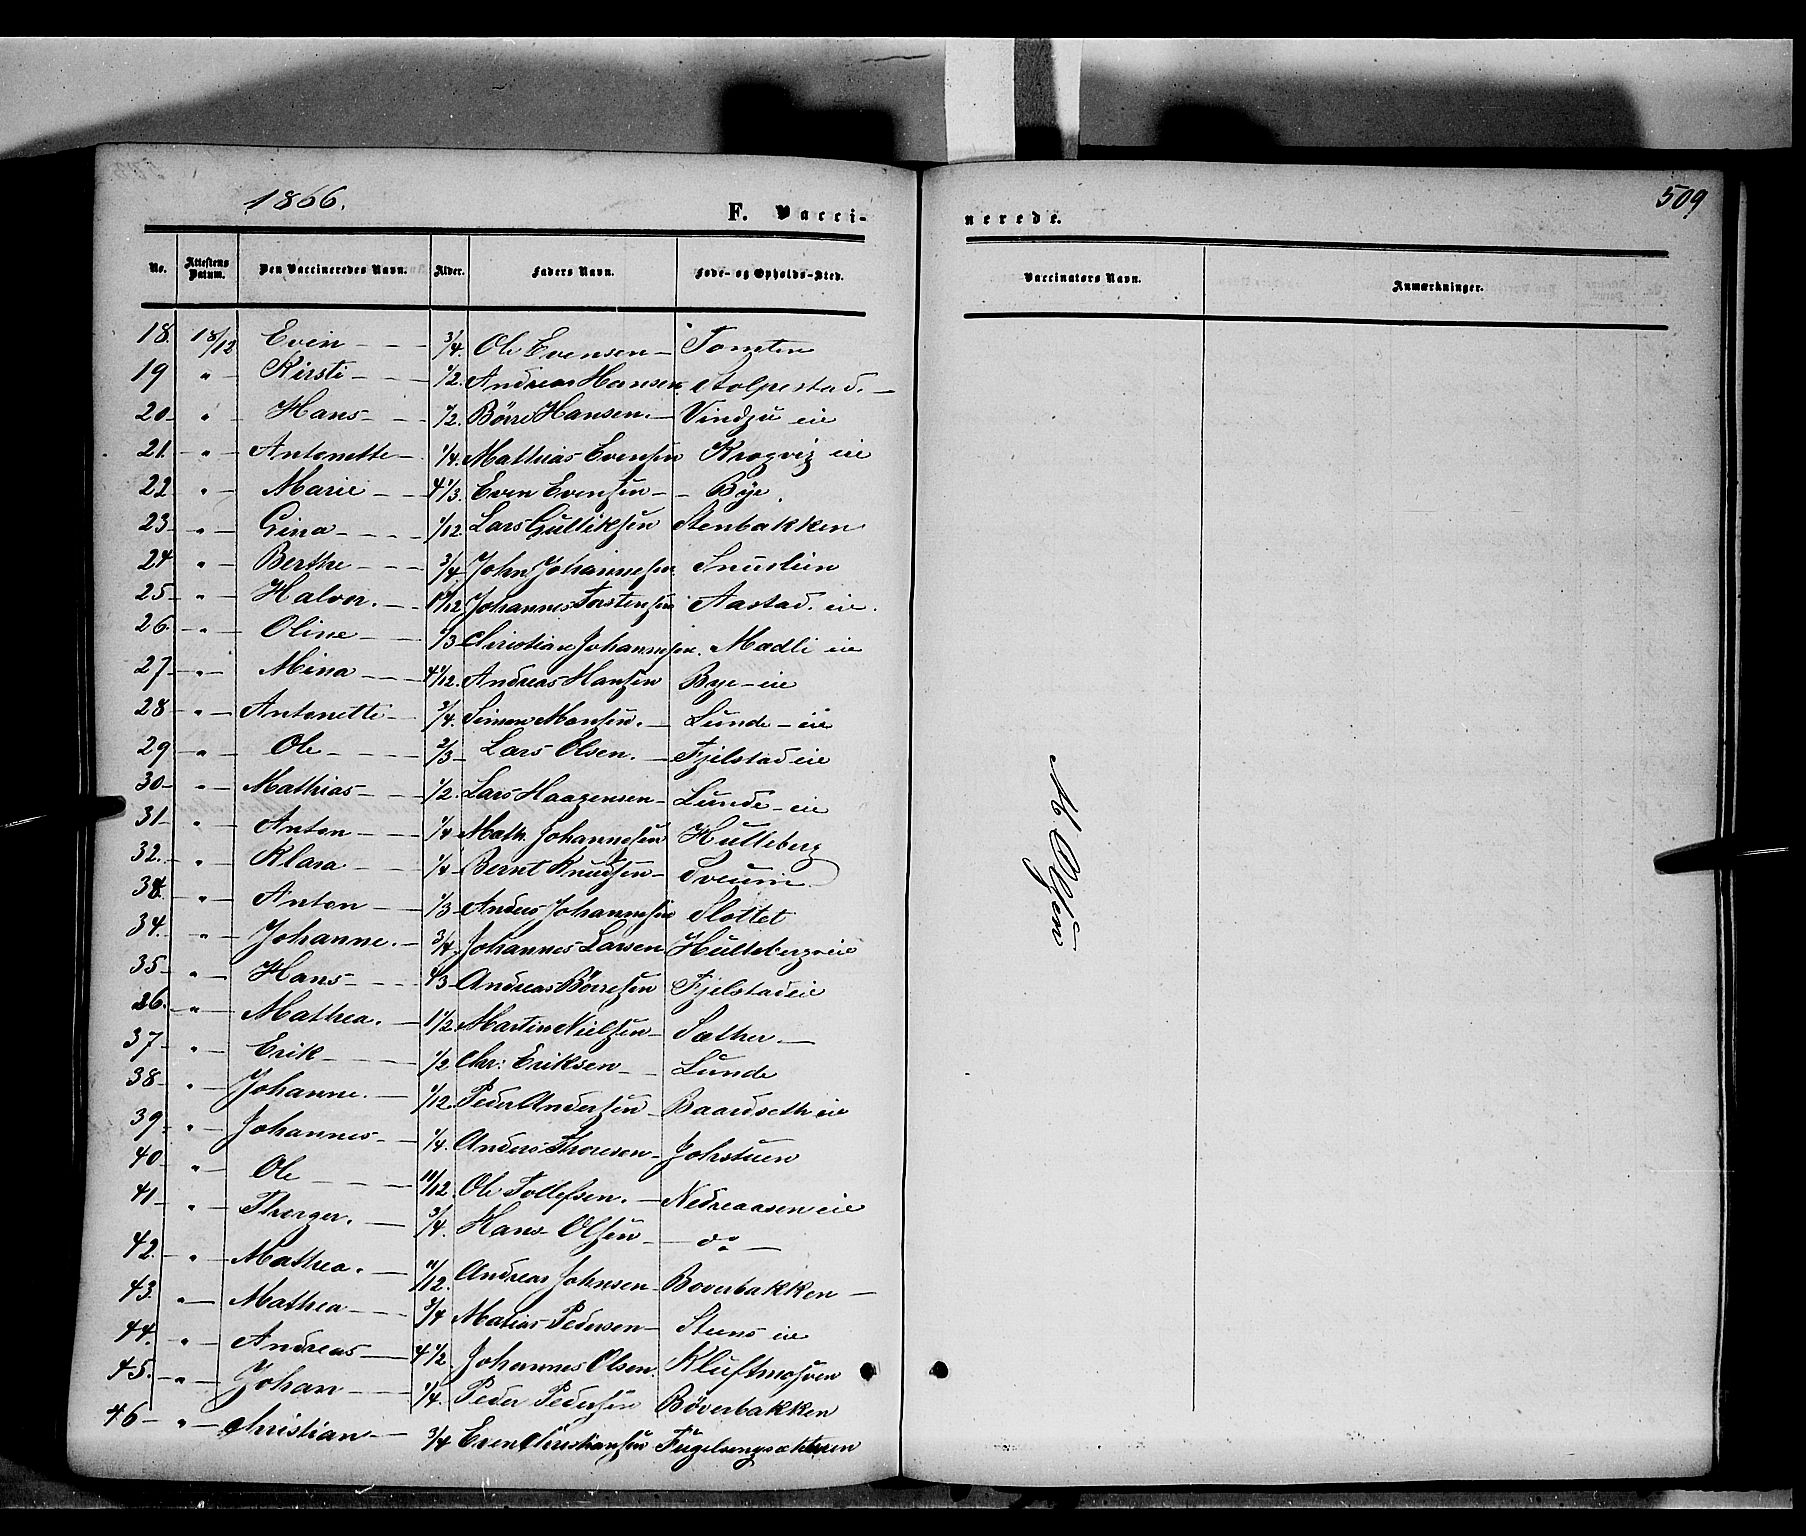 1866.
F. Vacci-
nerede.
509
No. Attestens Datum. Den Vaccineredes Navn. Alder. Faders Navn. Føde- og Opholds-Sted. Vaccinators Navn. Anmærkninger.
18. 18/12 Even 3/4. Ole Evensen Tomten
19 " Kirsti 1/2. Andreas Hansen Stolpestad.
20 " Hans 1/2. Börre Hansen. Vindju eie
21. " Antonette 1/4. Mathias Evensen Krogvig eie
22 " Marie 4 1/3. Even Evensen Bye.
23 " Gina 1/12 Lars Gulliksen Stenbakken
24 " Berthe 3/4. John Johannesen Snuslien
25 " Halvor. Johannes Torstensen Aastad. eie.
26. " Oline Christian Johannesen. Mædli eie
27 " Mina Andreas Hansen Bye eie
28 " Antonette 3/4. Simen Monsen. Lunde eie
29 " Ole 2/3 Lars Olsen. Fjelstad eie
30 " Mathias 1/2. Lars Haagensen Lunde eie
31 " Anton 1/4 Math. Johannesen Hulleberg
32. " Klara 1/4 Bernt Knudsen Sveum
" Anton 1/3 Anders Johannesen Slottet
34. " Johanne. 3/4 Johannes Larsen Hulleberg eie
35 " Hans Andreas Börresen Fjelstad eie
" Mathea. 1 1/2. Martin Nielsen Sæther.
37 " Erik 1/2 Chr: Eriksen Lunde
38 " Johanne. Peder Andersen Baardseth eie
39 " Johannes 1/4. Anders Thoresen Johstuen
40 " Ole 11/12. Ole Tollefsen. Nedreaasen eie
41 " Thorger. 3/4. Hans Olsen do
42. " Mathea. 11/12. Andreas Johnsen Boverbakken
43. " Mathea 3/4 Matias Pedersen Steens eie
44. " Andreas 4 1/2. Johannes Olsen. Kluftmosven
45. " Johan 1/4. Peder Pedersen Böverbakken
46 " Christian 3/4 Even Christiansen
M. Olsen